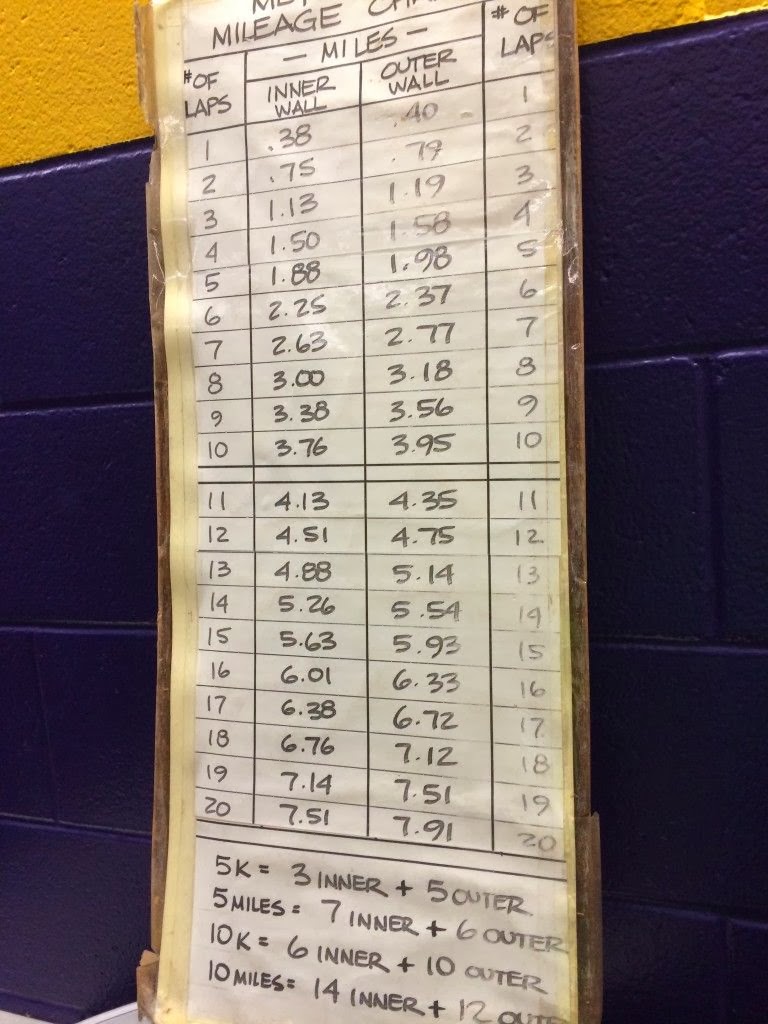 MILEAGE
# OF
— MILES —
LAPS
#OF
LAPS
INNER
WALL
OUTER
WALL
1 .38 .40 1
2 .75 .79 2
3 1.13 1.19 3
4 1.50 1.58 4
5 1.88 1.98 5
6 2.25 2.37 6
7 2.63 2.77 7
8 3.00 3.18 8
9 3.38 3.56 9
10 3.76 3.95 10
11 4.13 4.35 11
12 4.51 4.75 12
13 4.88 5.14 13
14 5.26 5.54 14
15 5.63 5.93 15
16 6.01 6.33 16
17 6.38 6.72 17
18 6.76 7.12 18
19 7.14 7.51 19
20 7.51 7.91 20
5K = 3 INNER + 5 OUTER
5 MILES = 7 INNER + 6 OUTER
10K = 6 INNER + 10 OUTER
10 MILES = 14 INNER + 12 OUTER